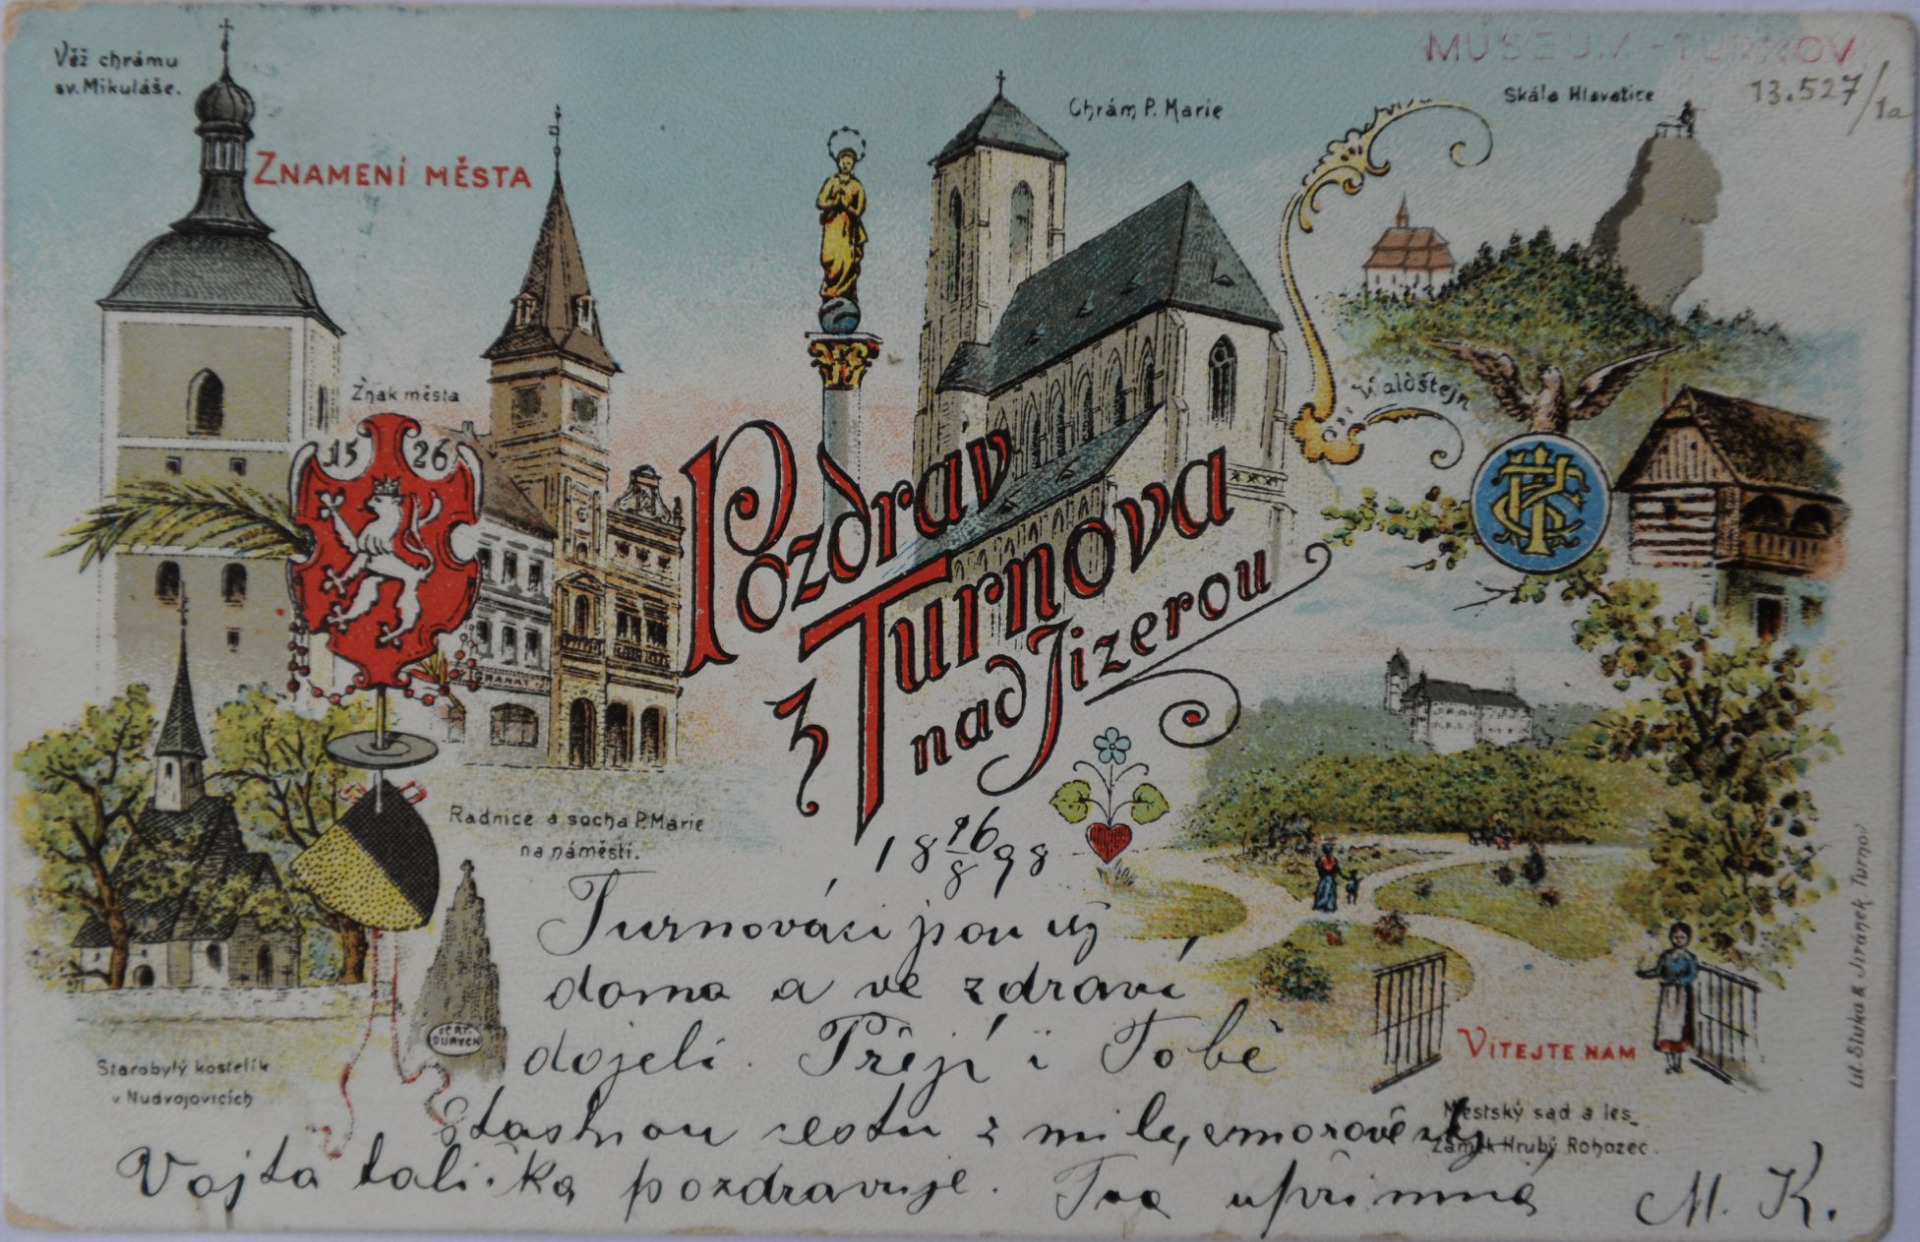 MUSEUM - TURNOV
13.527/1a
Věž chrámu
sv. Mikuláše.
ZNAMENÍ MĚSTA
Chrám P. Marie
Skála Hlavatice
Znak města
1526
Waldštejn
Pozdrav
z Turnova
nad Jizerou
Radnice a socha P. Marie
na náměstí.
18 26/8 98
Turnováci jsou již
doma a ve zdraví
dojeli. Přejí i Tobě
šťastnou cestu z milé
Vojta pozdravuje. Tva upřímná M. K.
Starobylý kostelík
v Nudvojovicích
FORT.
DURYCH
VÍTEJTE NÁM
Městský sad a les,
Zámek Hrubý Rohozec.
Lit. Sluka & Jiránek Turnov